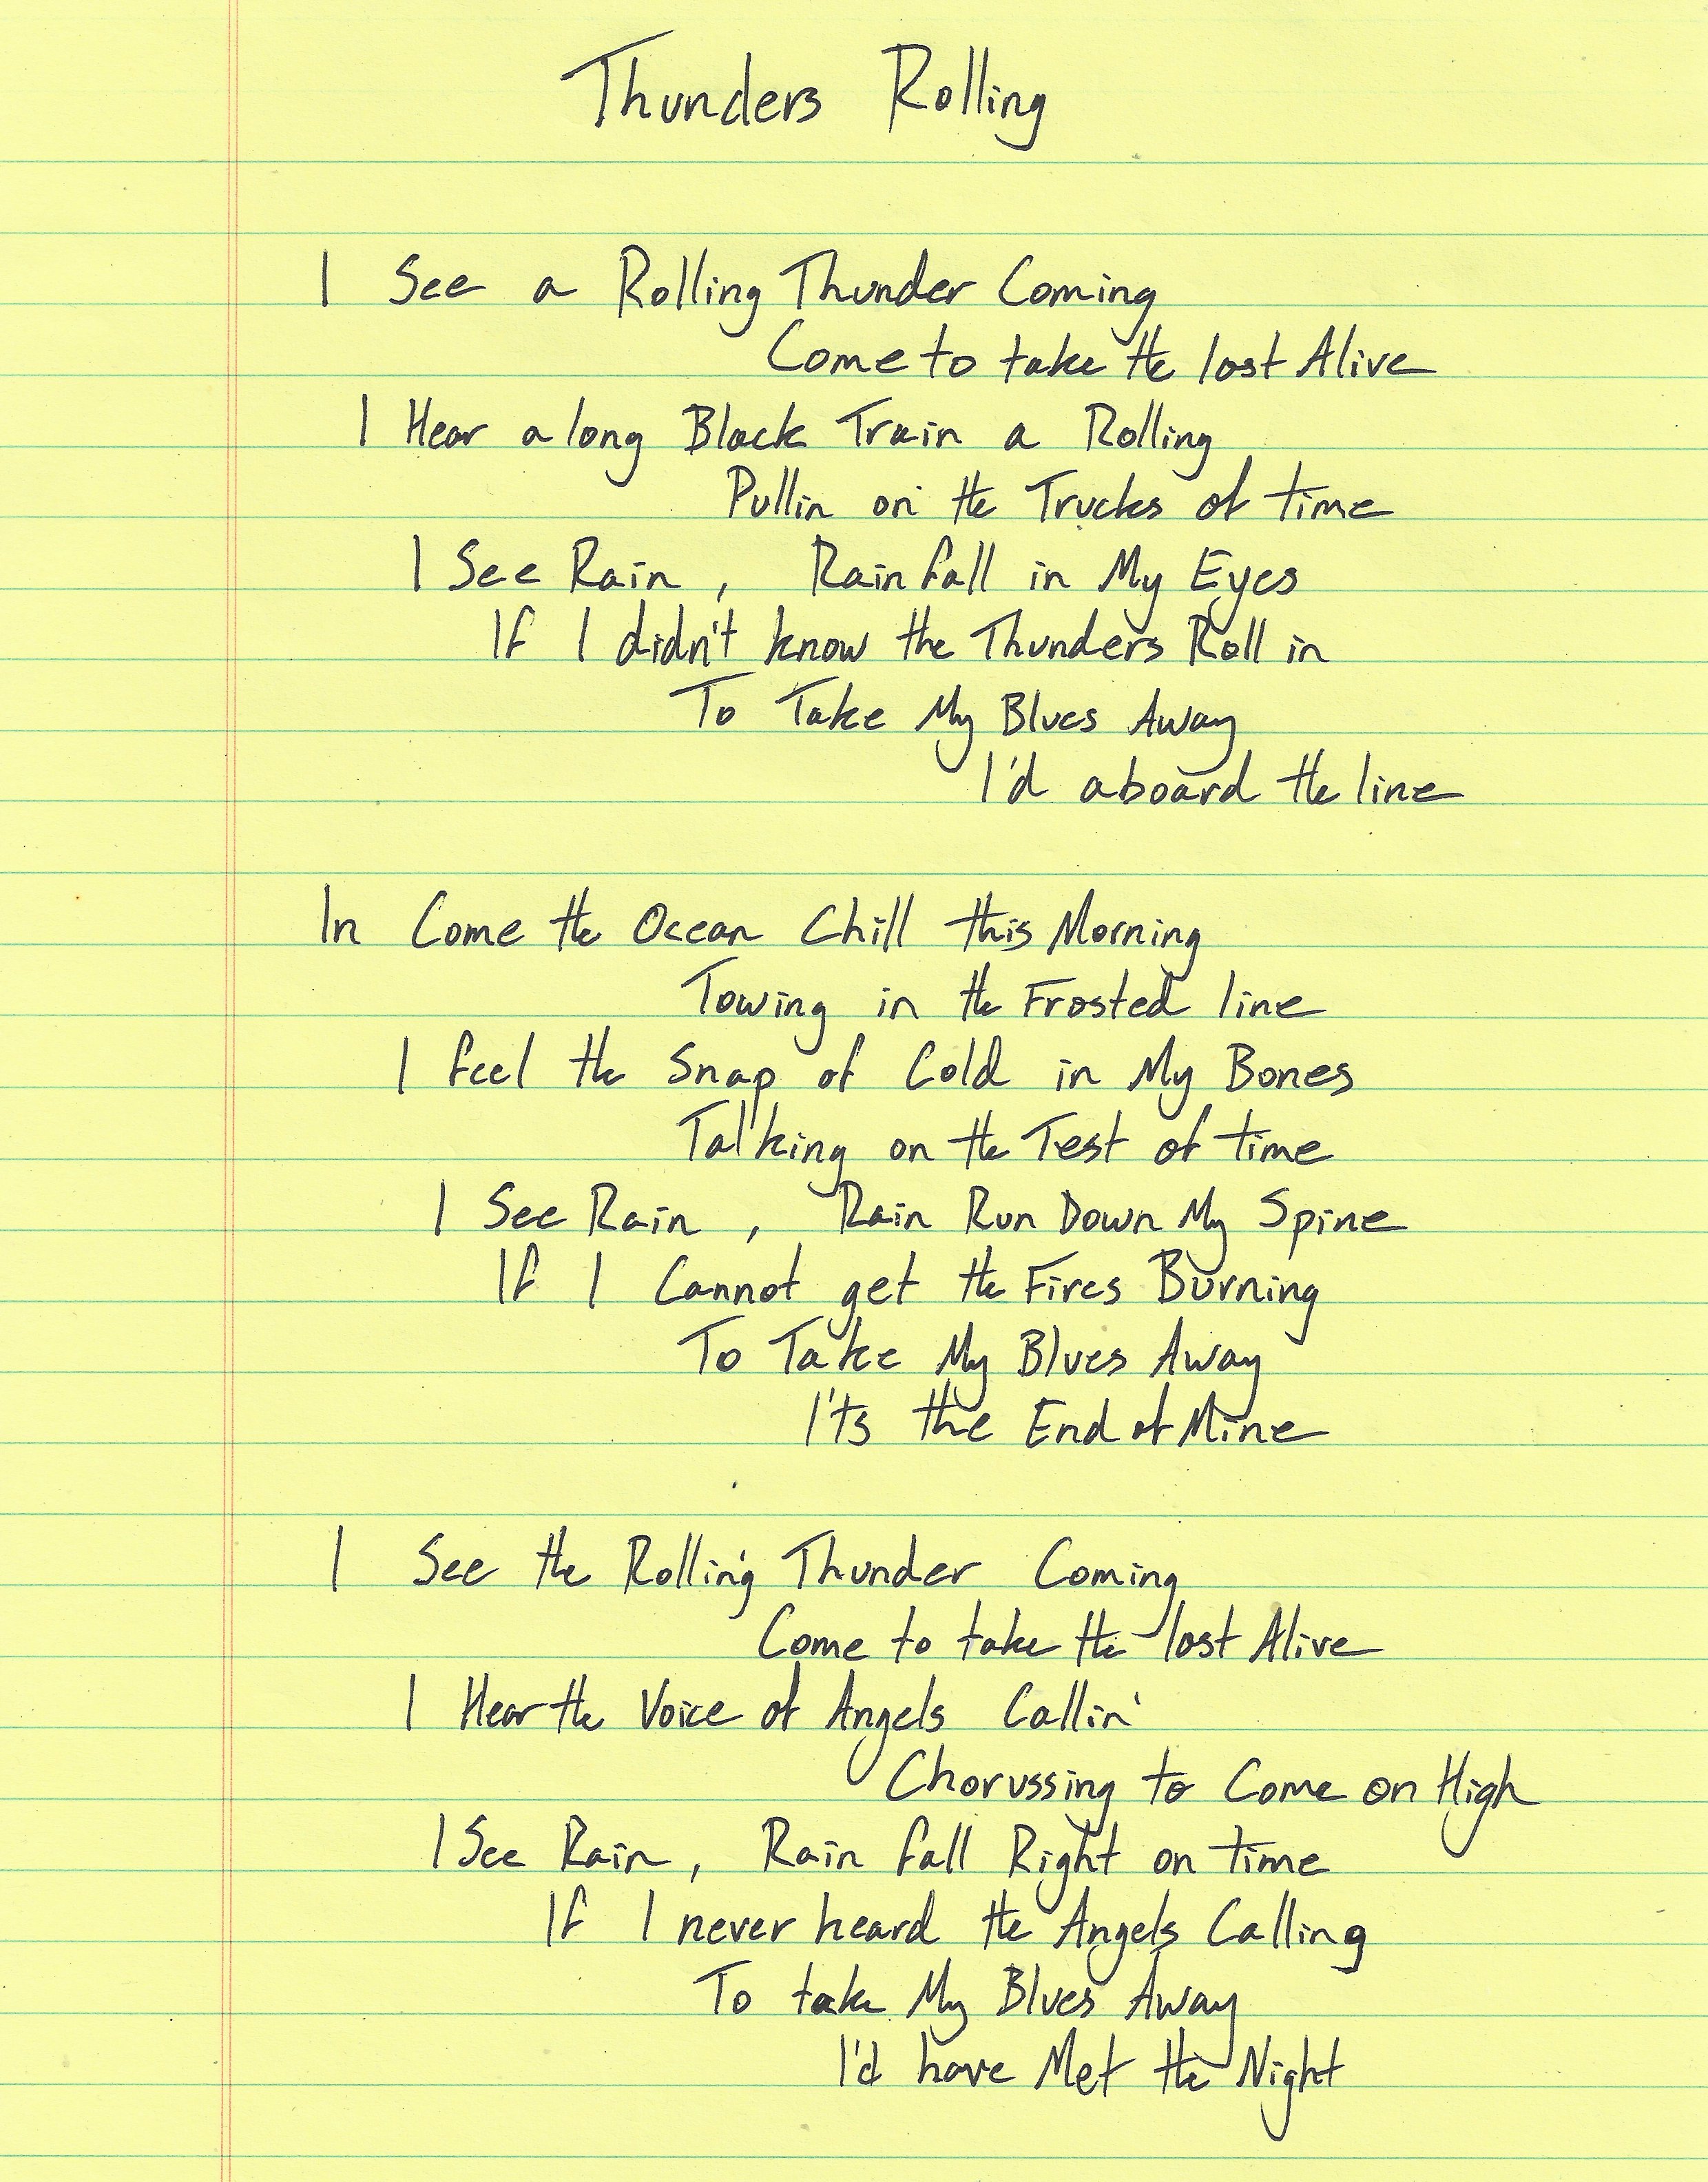 Thunders Rolling
I See a Rolling Thunder Coming
Come to take the lost Alive
I Hear a long Black Train a Rolling
Pullin on the Trucks of time
I See Rain , Rain fall in My Eyes
If I didn't know the Thunders Roll in
To Take My Blues Away
I'd aboard the line
In Come the Ocean Chill this Morning
Towing in the Frosted line
I feel the Snap of Cold in My Bones
Talking on the Test of time
I See Rain , Rain Run Down My Spine
If I Cannot get the Fires Burning
To Take My Blues Away
I'ts the End of Mine
I See the Rolling Thunder Coming
Come to take the lost Alive
I Hear the Voice of Angels Callin'
Chorussing to Come on High
I See Rain, Rain fall Right on time
If I never heard the Angels Calling
To take My Blues Away
I'd have Met the Night